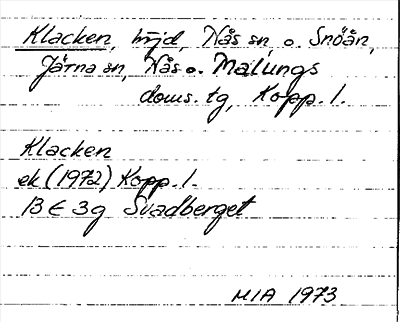 Klacken, höjd, Nås sn, o. Snöån,
Järna sn, Nås o. Malungs
doms. tg, Kopp. l.
Klacken
ek (1972) Kopp. l.
13 E 3g Svadberget
MIA 1973